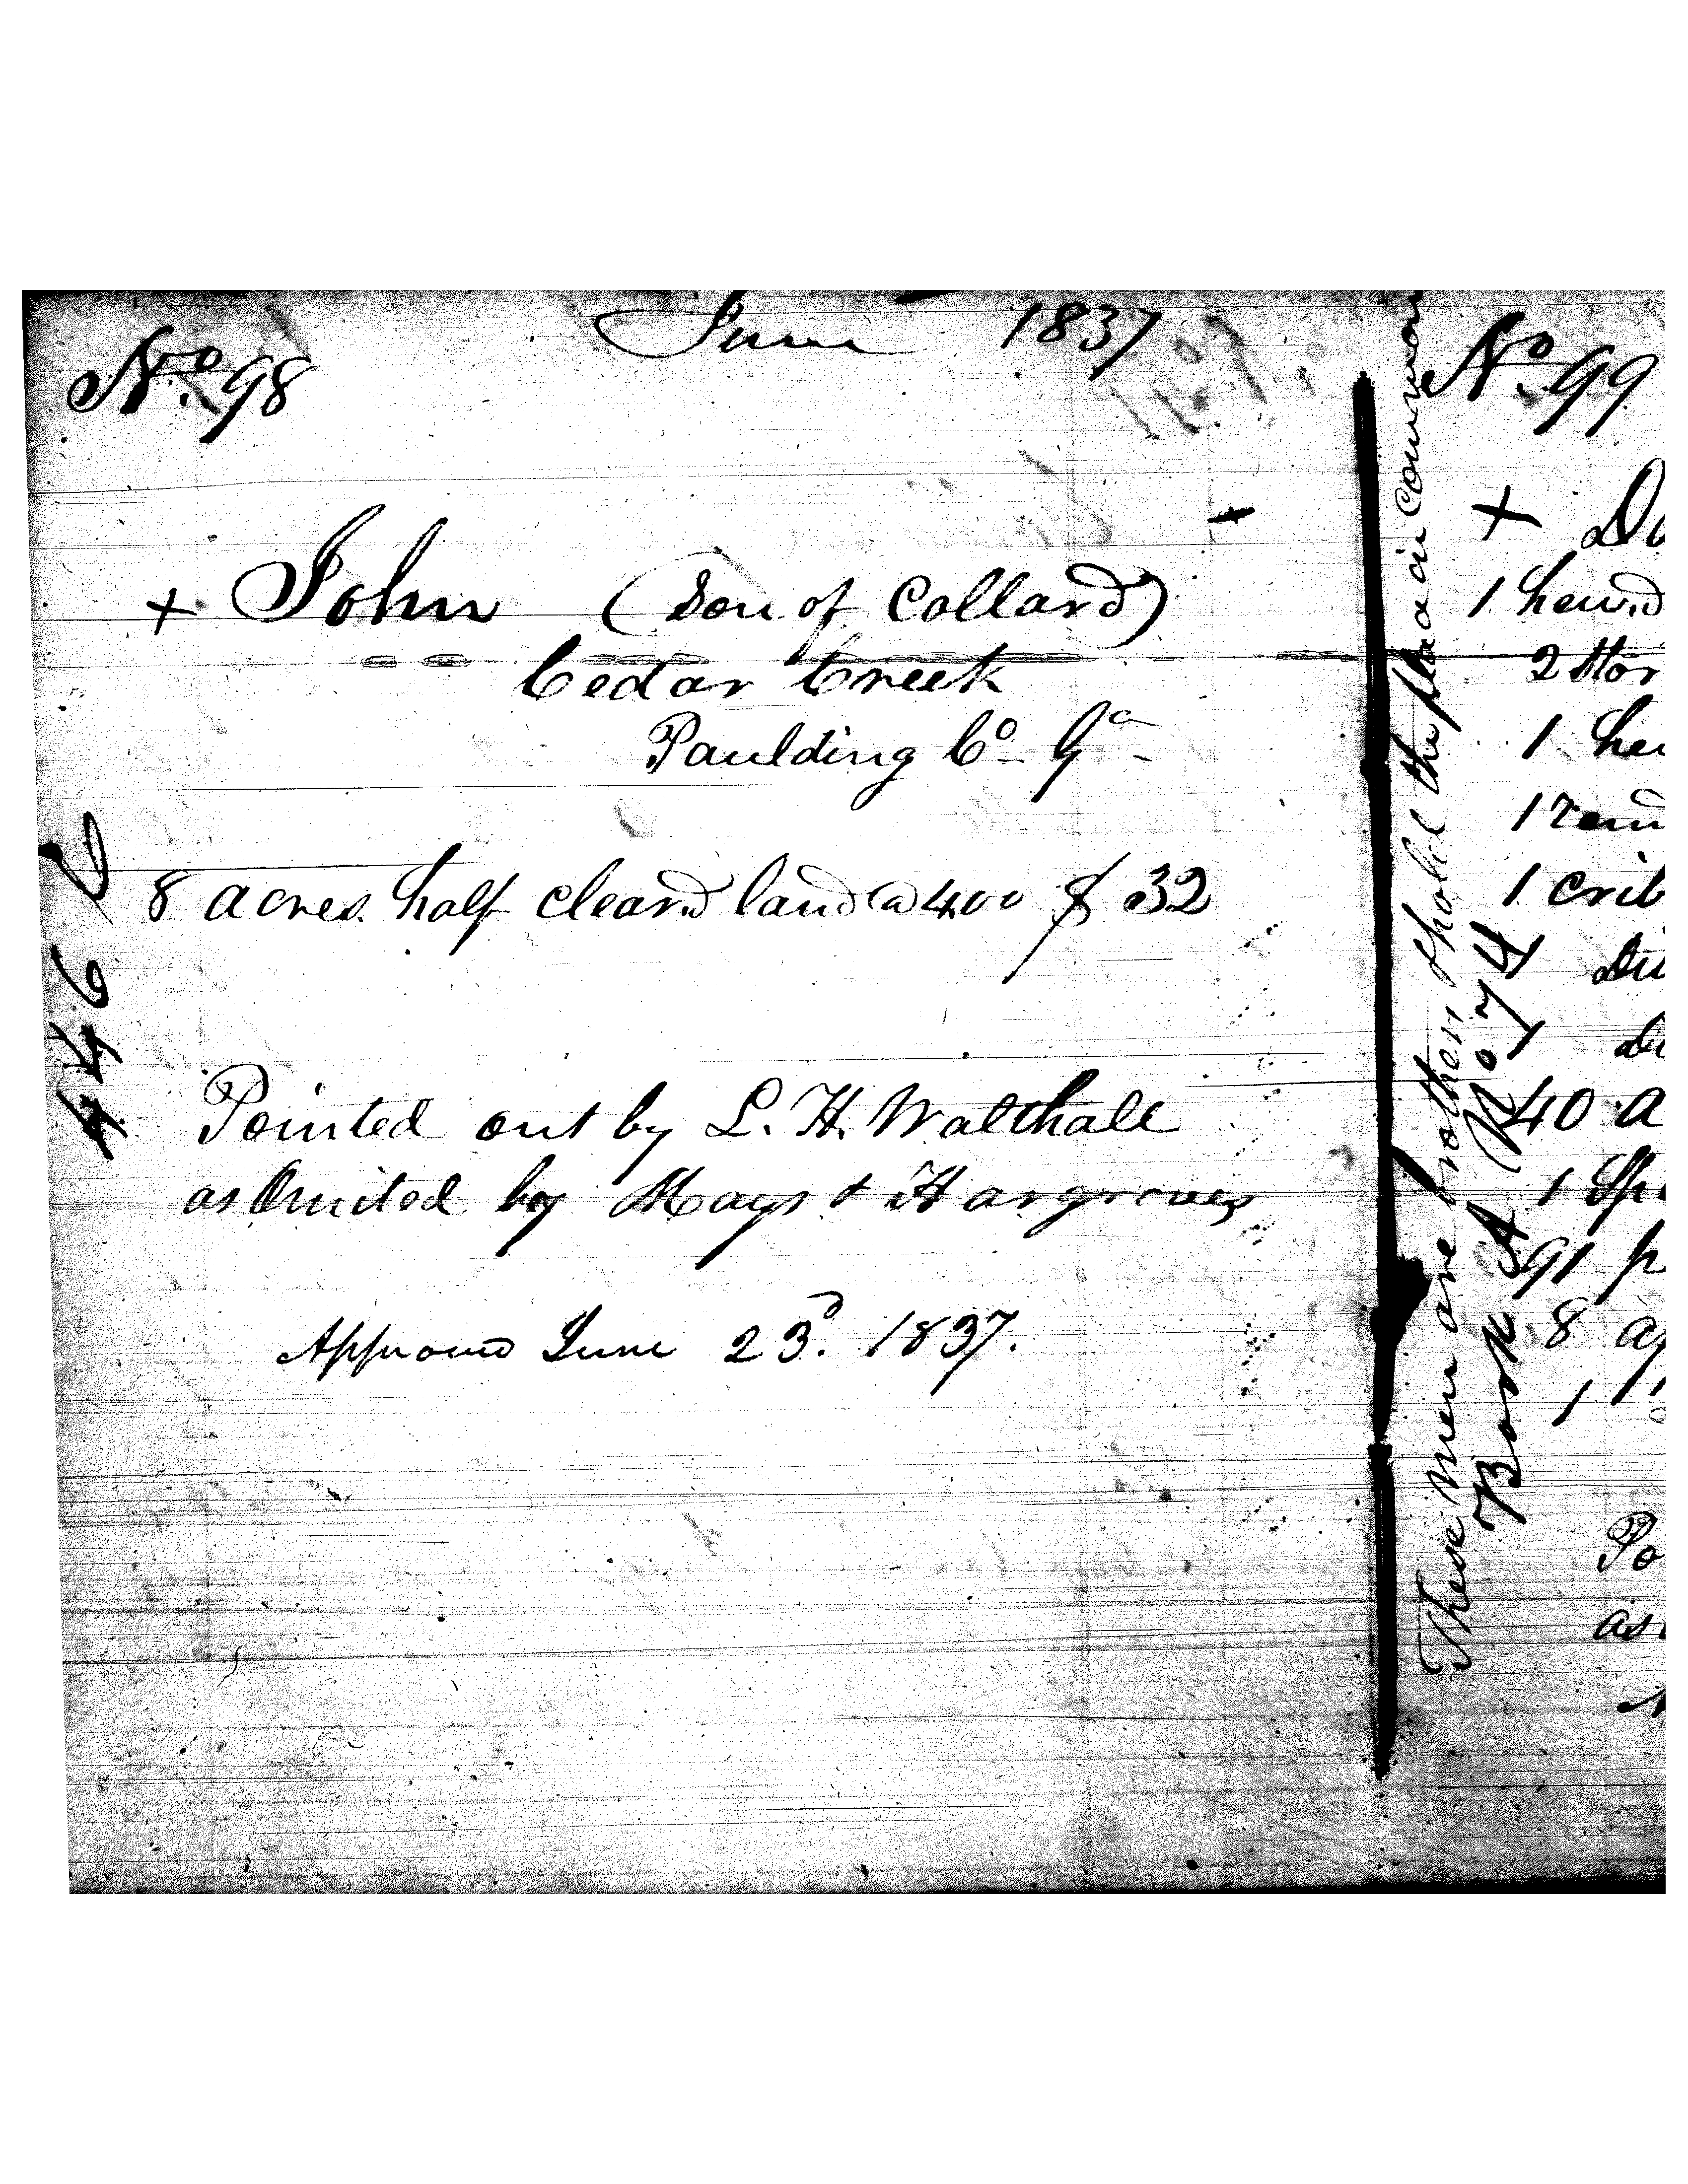 June 1837
No. 98
+ John (Son of Collard)
Cedar Creek
Paulding Co. Ga
8 acres half cleard land @ 400 $ 32
Pointed out by L. H. Walthall
as Omited by Mays & Hargroves
Approved June 23d. 1837.
446
These men are brothers & hold the place in common
Book A No 74
No. 99
+
1 hewd
2 stor
1 hew
1
1 crib
40 a
1 Sp
91 p
8 ap
1
Po
as